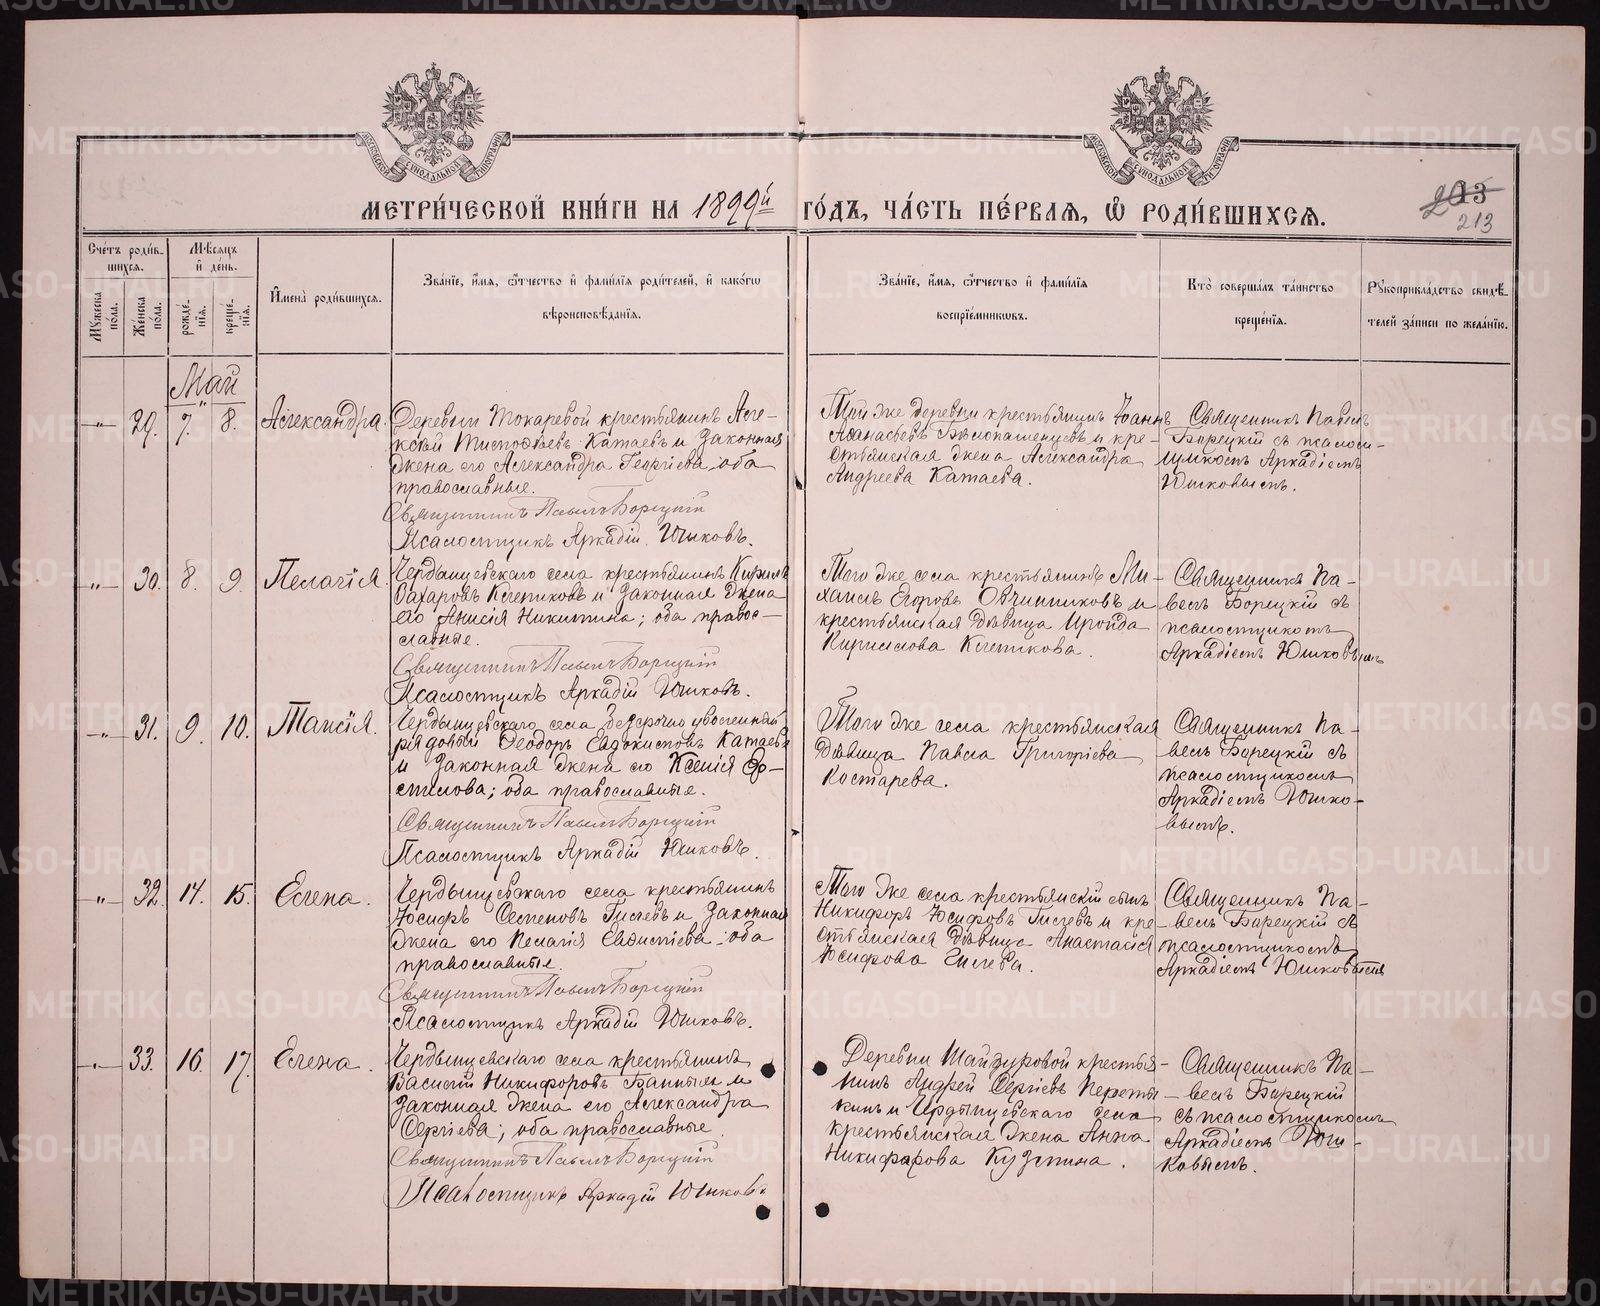 МЕТРИ́ЧЕСКОЙ КНИ́ГИ НА 1899й ГО́ДЪ, ЧА́СТЬ ПЕ́РВАЯ, Ѽ РОДИ́ВШИХСЯ.
213
213
Сче́тъ роди́в-
шихся.
Мѣ́сяцъ
и҆ де́нь.
И҆мена̀ роди́вшихся.
Зва́нїе, и҆́мя, ѻ҆́тчество и҆ фами́лїя роди́телей, и҆ како́гѡ
вѣроисповѣ́данїя.
Зва́нїе, и҆́мя, ѻ҆́тчество и҆ фами́лїя
воспрїе́мникѡвъ.
Кто̀ соверша́лъ та́инство
креще́нїя.
Рꙋкоприкла́дство свидѣ́-
телей за́писи по жела́нїю.
Мꙋ́жеска
по́ла.
Же́нска
по́ла.
рожде́-
нїя.
креще́-
нїя.
Май
-„- 29. 7. 8. Александра.
Деревни Токаревой крестьянинъ Але-
ксѣй Катаевъ и законная
жена его Александра Георгіева; оба
православные.
Священникъ Павелъ Борецкій
Псаломщикъ Аркадій Юшковъ.
Той же деревни крестьянинъ Іоаннъ
Аѳанасьевъ Бѣлокашенцевъ и кре-
стьянская жена Александра
Андреева Катаева.
Священникъ Павелъ
Борецкій съ псалом-
щикомъ Аркадіемъ
Юшковымъ.
-„- 30. 8. 9. Пелагія.
Чердынцевскаго села крестьянинъ Кириллъ
Захаровъ Клепиковъ и законная жена
его Анисія Никитина; оба правос-
лавные.
Священникъ Павелъ Борецкій
Псаломщикъ Аркадій Юшковъ.
Того же села крестьянинъ Ми-
хаилъ Егоровъ Овчинниковъ и
крестьянская дѣвица Ироида
Кириллова Клепикова.
Священникъ Па-
велъ Борецкій съ
псаломщикомъ
Аркадіемъ Юшковымъ
-„- 31. 9. 10. Таисія.
Чердынцевскаго села безсрочно уволенный
рядовый Ѳеодоръ Евдокимовъ Катаевъ
и законная жена его Ксенія Ѳо-
стилова; оба православные.
Священникъ Павелъ Борецкій
Псаломщикъ Аркадій Юшковъ.
Того же села крестьянская
дѣвица Павла Григоріева
Костарева.
Священникъ Па-
велъ Борецкій съ
псаломщикомъ
Аркадіемъ Юшко-
вымъ.
-„- 32. 14. 15. Елена.
Чердынцевскаго села крестьянинъ
Іосифъ Семеновъ Гилевъ и законная
жена его Пелагія оба
православные.
Священникъ Павелъ Борецкій
Псаломщикъ Аркадій Юшковъ.
Того же села крестьянскій сынъ
Никифоръ Іосифовъ Гилевъ и кре-
стьянская дѣвица Анастасія
Іосифова Гилева.
Священникъ Па-
велъ Борецкій съ
псаломщикомъ
Аркадіемъ Юшковымъ
-„- 33. 16. 17. Елена.
Чердынцевскаго села крестьянинъ
Василій Никифоровъ Банныхъ и
законная жена его Александра
Сергіева; оба православные.
Священникъ Павелъ Борецкій
Псаломщикъ Аркадій Юшковъ.
Деревни Шайдуровой крестья-
нинъ Андрей Сергіевъ
и Чердынцевскаго села
крестьянская жена Анна
Никифорова Кузмина.
Священникъ Па-
велъ Борецкій
съ псаломщикомъ
Аркадіемъ Юш-
ковымъ.
METRIKI.GASO-URAL.RU